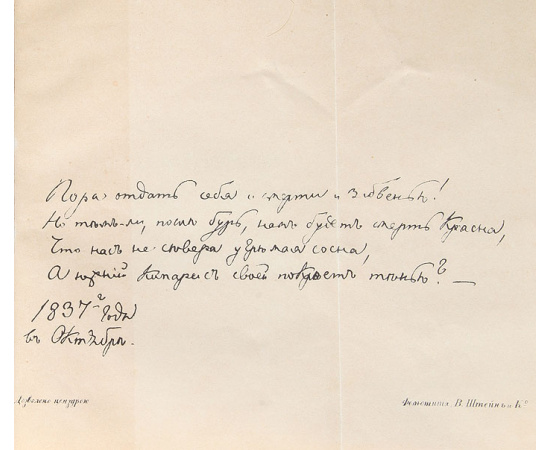 Пора отдать себя и смерти и забвенью!
Не тѣмъ-ли, послѣ бурь, намъ будетъ смерть красна,
Что насъ не сѣвера угрюмая сосна,
А южный кипарисъ своей покроетъ тѣнью? —
1837-г года
въ Октябрѣ.
Дозволено цензурою
Фототипія В. Штейнъ и Кº